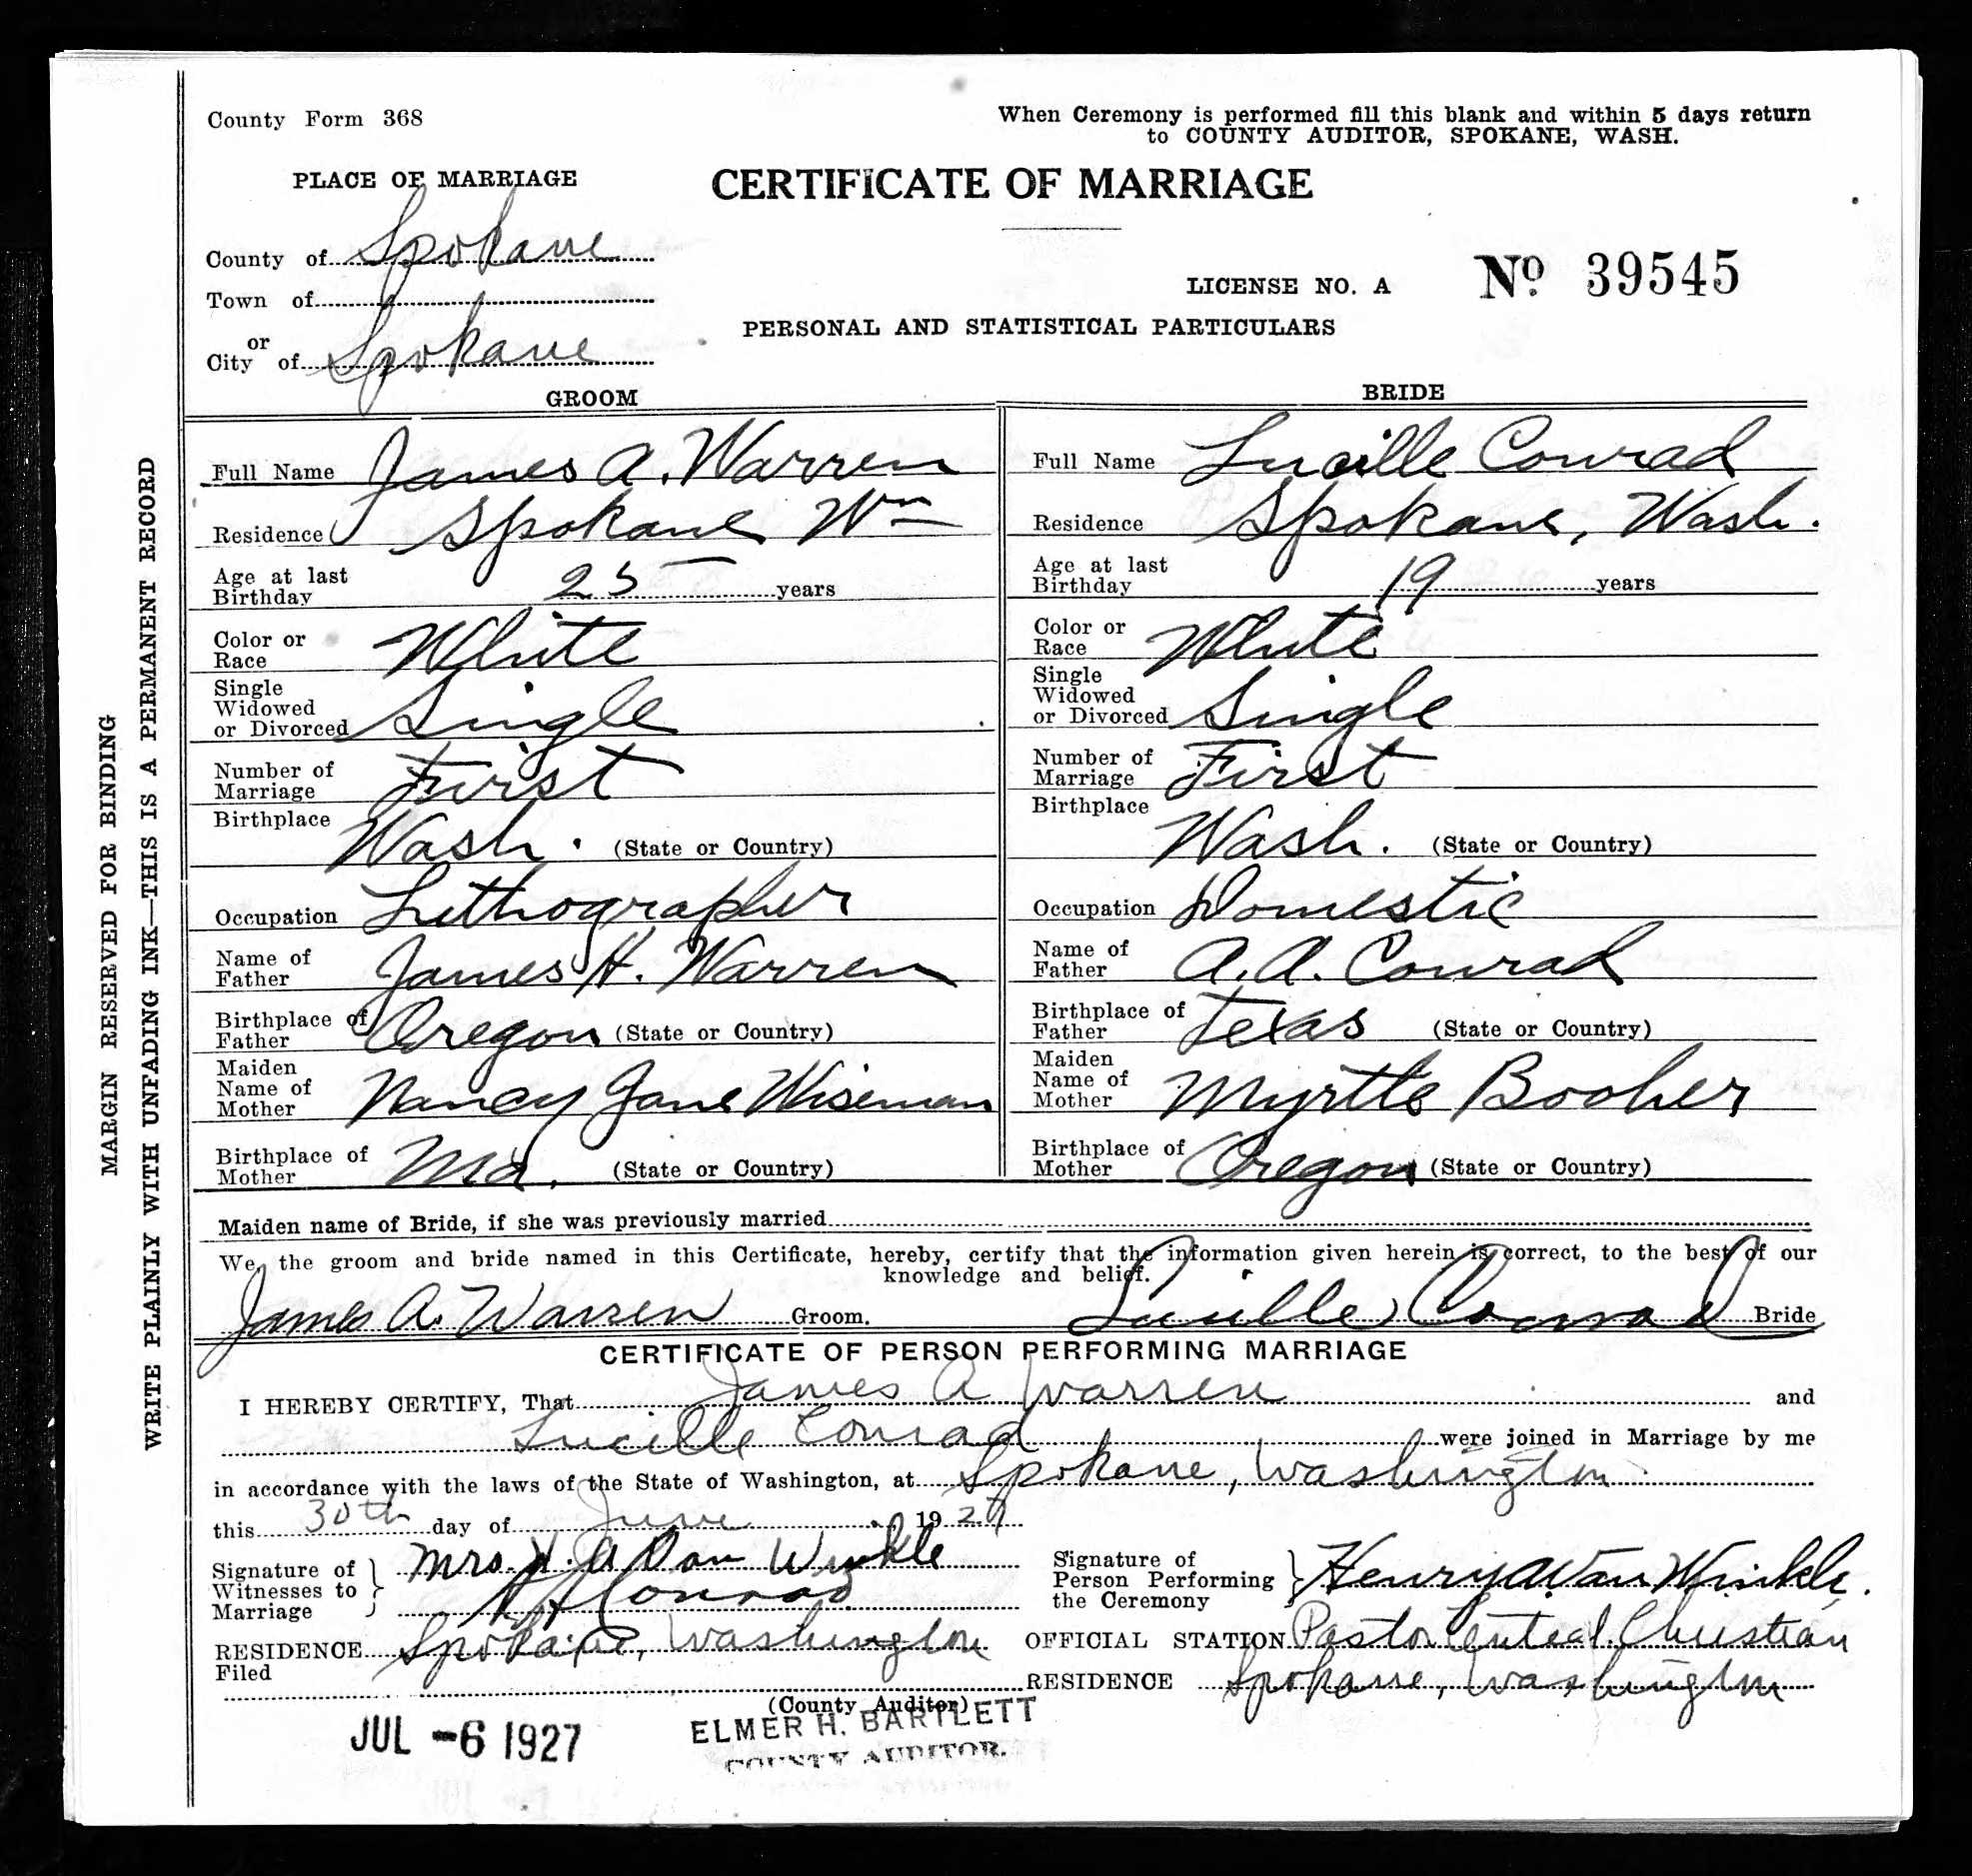 County Form 368
When Ceremony is performed fill this blank and within 5 days return
to COUNTY AUDITOR, SPOKANE, WASH.
PLACE OF MARRIAGE
CERTIFICATE OF MARRIAGE
County of Spokane
LICENSE NO. A Nº 39545
Town of
or
City of Spokane
PERSONAL AND STATISTICAL PARTICULARS
GROOM
Full Name James A. Warren
Residence Spokane Wn
Age at last
Birthday 25 years
Color or
Race White
Single
Widowed
or Divorced Single
Number of
Marriage First
Birthplace
Wash. (State or Country)
Occupation Lithographer
Name of
Father James H. Warren
Birthplace of
Father Oregon (State or Country)
Maiden
Name of
Mother Nancy Jane Wiseman
Birthplace of
Mother (State or Country)
BRIDE
Full Name Lucille Conrad
Residence Spokane, Wash.
Age at last
Birthday 19 years
Color or
Race White
Single
Widowed
or Divorced Single
Number of
Marriage First
Birthplace
Wash. (State or Country)
Occupation Domestic
Name of
Father A. A. Conrad
Birthplace of
Father Texas (State or Country)
Maiden
Name of
Mother Myrtle Booher
Birthplace of
Mother Oregon (State or Country)
Maiden name of Bride, if she was previously married
We, the groom and bride named in this Certificate, hereby, certify that the information given herein is correct, to the best of our
knowledge and belief.
James A. Warren Groom. Lucille Conrad Bride
CERTIFICATE OF PERSON PERFORMING MARRIAGE
I HEREBY CERTIFY, That James A Warren and
Lucille Conrad were joined in Marriage by me
in accordance with the laws of the State of Washington, at Spokane, Washington
this 30th day of June, 1927
Signature of
Witnesses to
Marriage
Mrs. H. A Van Winkle
Conrad
RESIDENCE Spokane, Washington
Filed
(County Auditor)
Signature of
Person Performing
the Ceremony
Henry A. Van Winkle.
OFFICIAL STATION Pastor Central Christian
RESIDENCE Spokane, Washington
JUL -6 1927
ELMER H. BARTLETT
COUNTY AUDITOR.
MARGIN RESERVED FOR BINDING
WRITE PLAINLY WITH UNFADING INK—THIS IS A PERMANENT RECORD